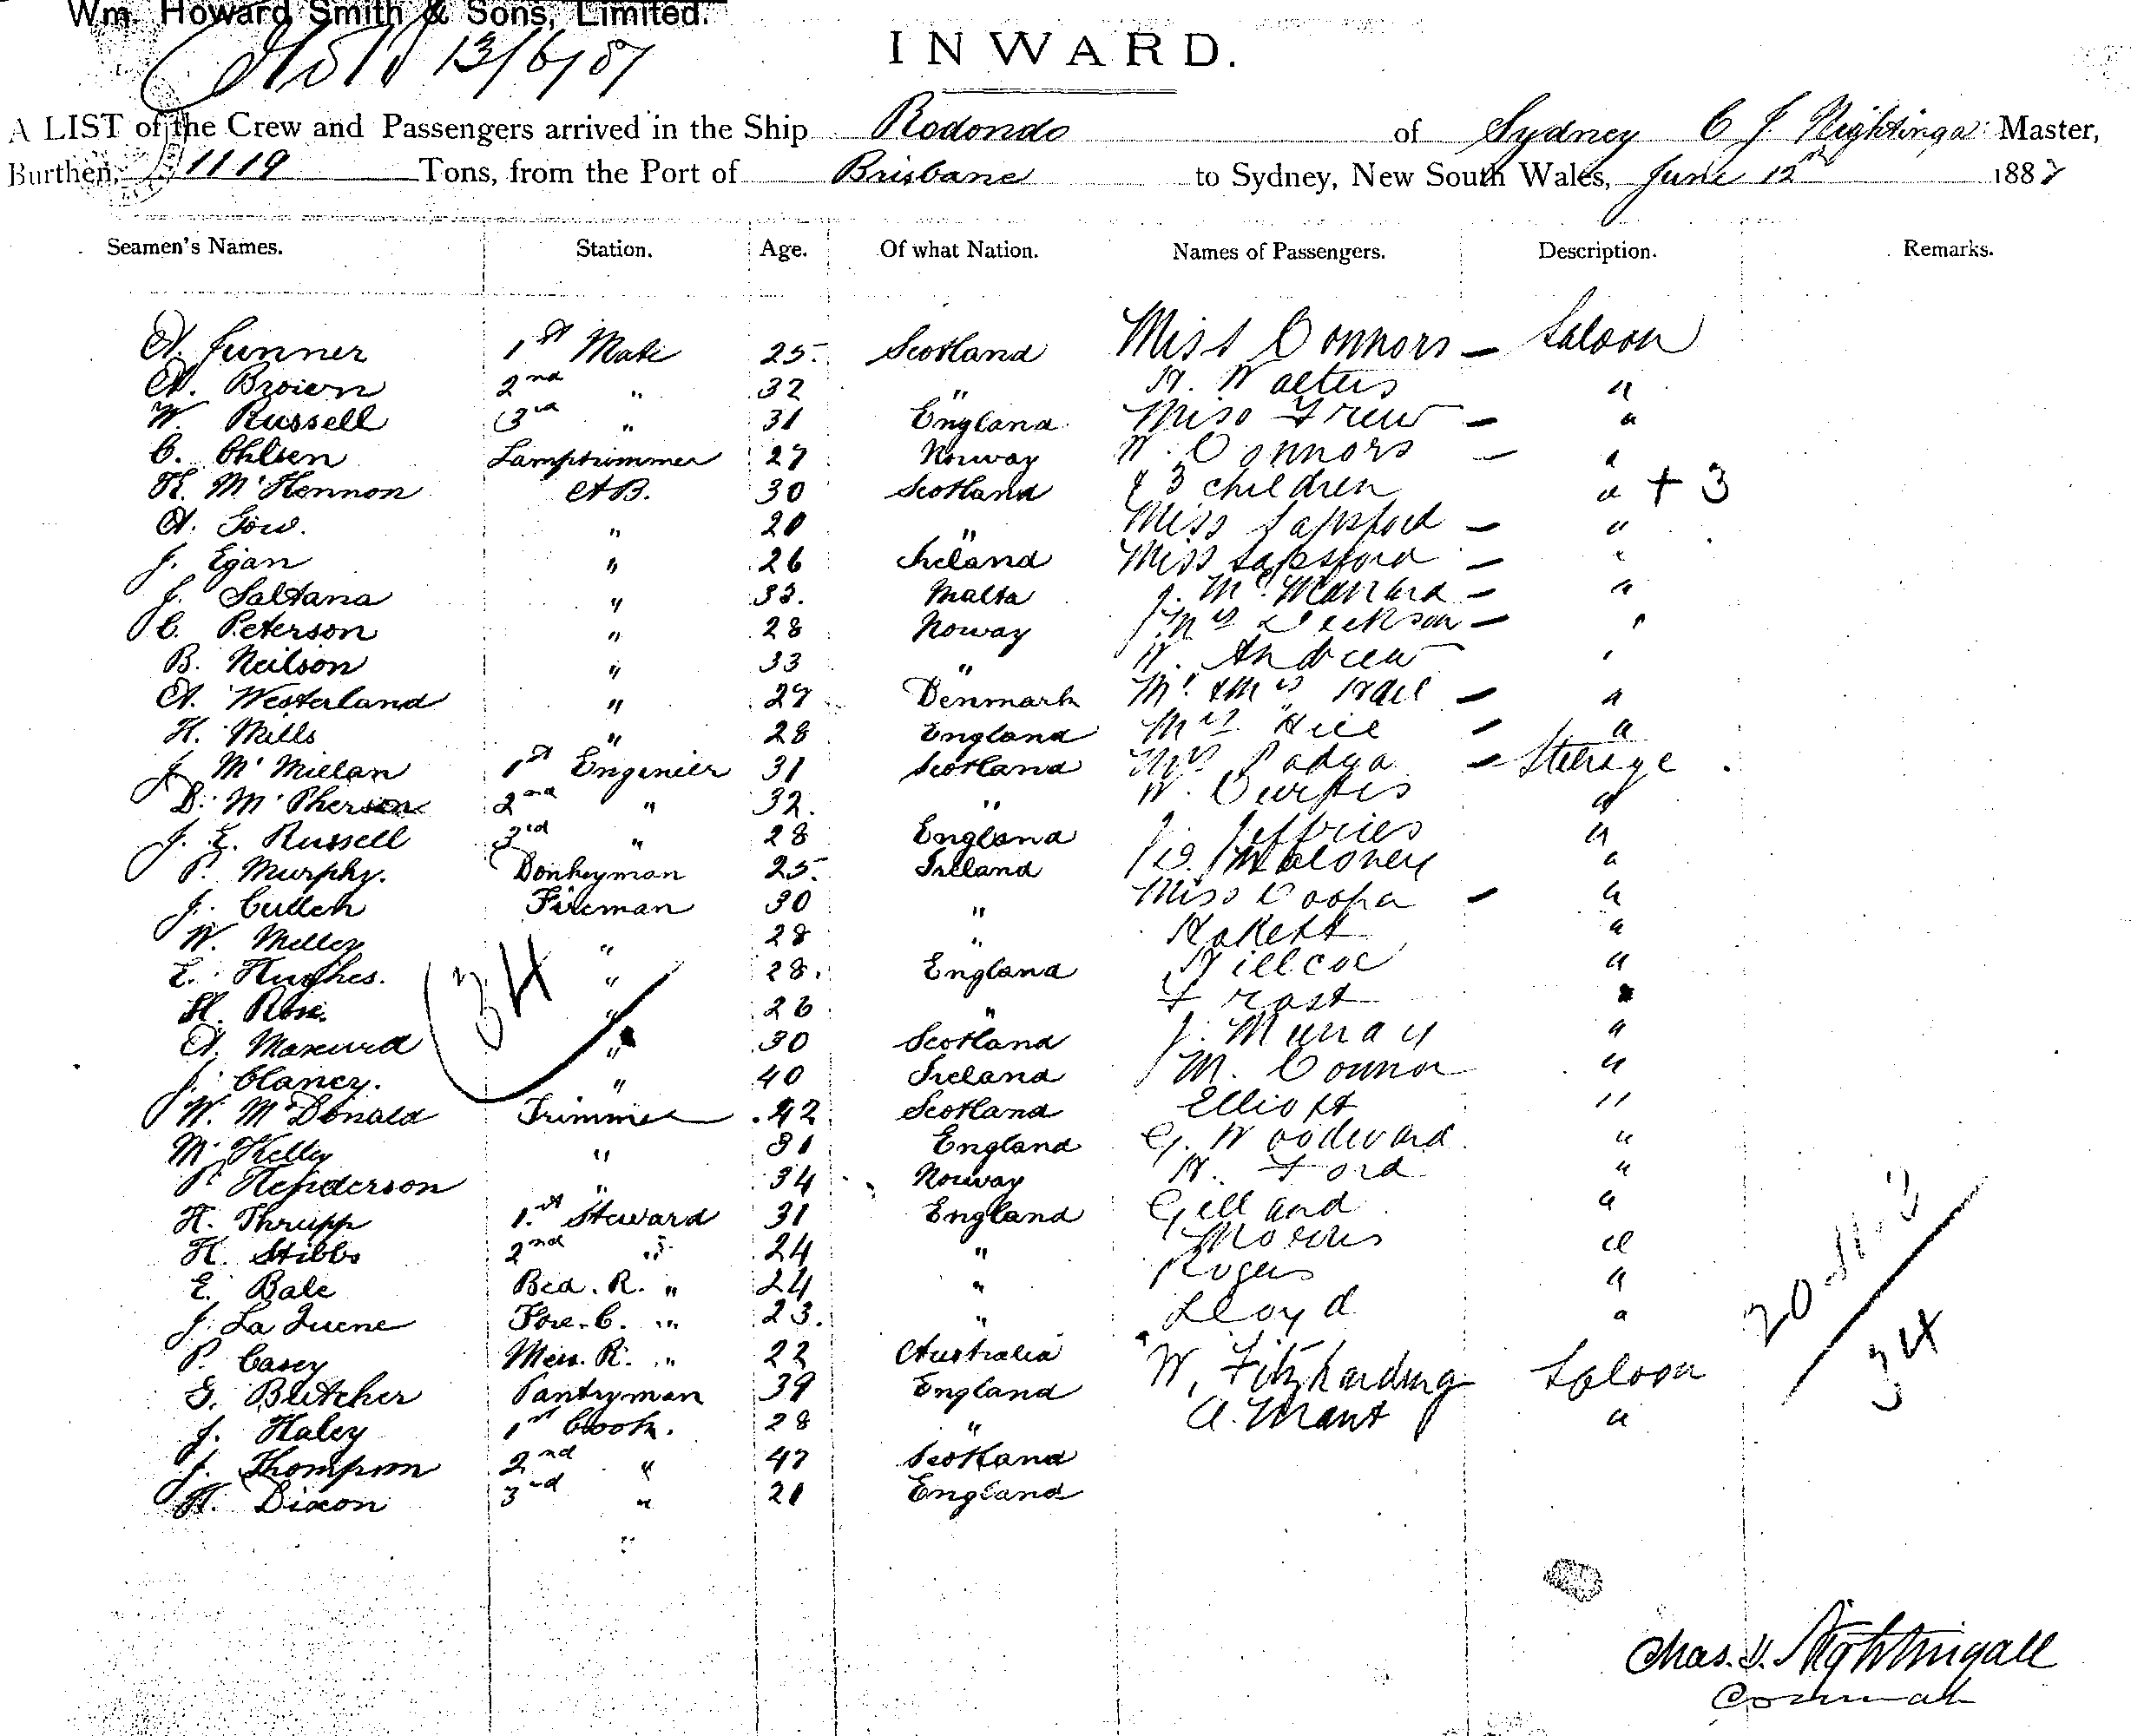 Wm. Howard Smith & Sons, Limited.
13/6/87
INWARD.
A LIST of the Crew and Passengers arrived in the Ship Rodondo of Sydney C J. Nightinga Master,
Burthen, 1119 Tons, from the Port of Brisbane to Sydney, New South Wales, June 12th 1887
Seamen's Names. Station. Age. Of what Nation. Names of Passengers. Description. Remarks.
A. Junner 1st Mate 25 Scotland Miss Connors - Saloon
A. Brown 2nd " 32 " H. Walters "
W. Russell 3rd " 31 England Miss Frew - "
C. Ohlsen Lamptrimmer 27 Norway W. Connors - "
H. McKennon AB. 30 Scotland & 3 children " + 3
A. Gow. " 20 " Miss Lapsford - "
J. Egan " 26 Ireland Miss Lapsford - "
J. Saltana " 33. Malta "
C. Peterson " 28 Noway Mrs Dickson - "
B. Neilson " 33 " W. Andrew "
A. Westerland " 27 Denmark Mr & Mrs - "
H. Mills " 28 England Mrs Hill - "
J McMillan 1st Enginier 31 Scotland Mrs - Steerage
D. McPherson 2nd " 32. " W. Curtis "
J. E. Russell 3rd " 28 England J. Jeffries "
P. Murphy. Donkeyman 25 Ireland Maloney "
J. Cullen Fireman 30 " Miss Coopa - "
W. " 28 " Hakett "
E. Hughes. " 28. England Willcoc "
H. Rose. " 26 " Frost "
A. " 30 Scotland J. Murray "
J. Clancy. " 40 Ireland M. Connor "
W. McDonald Trimmer 42 Scotland Elliott "
M. Kelly " 31 England G. Woodward "
P. Henderson " 34 Norway H. Ford "
H. Thrupp 1st Steward 31 England Gelland "
H. Stibbs 2nd " 24 " Morris "
E. Bale Bed. R. " 24 " Rogers "
J. La Quene Fore-C. " 23. " Lloyd "
P. Casey Mess. R. " 22 Australia
G. Butcher Pantryman 39 England W. Fitzharding Saloon
J. Haley 1st Cook. 28 " A. Mant "
J. Thompson 2nd " 47 Scotland
H. Dixon 3rd " 21 England
34
20-11-3
34
Chas. J. Nightingall